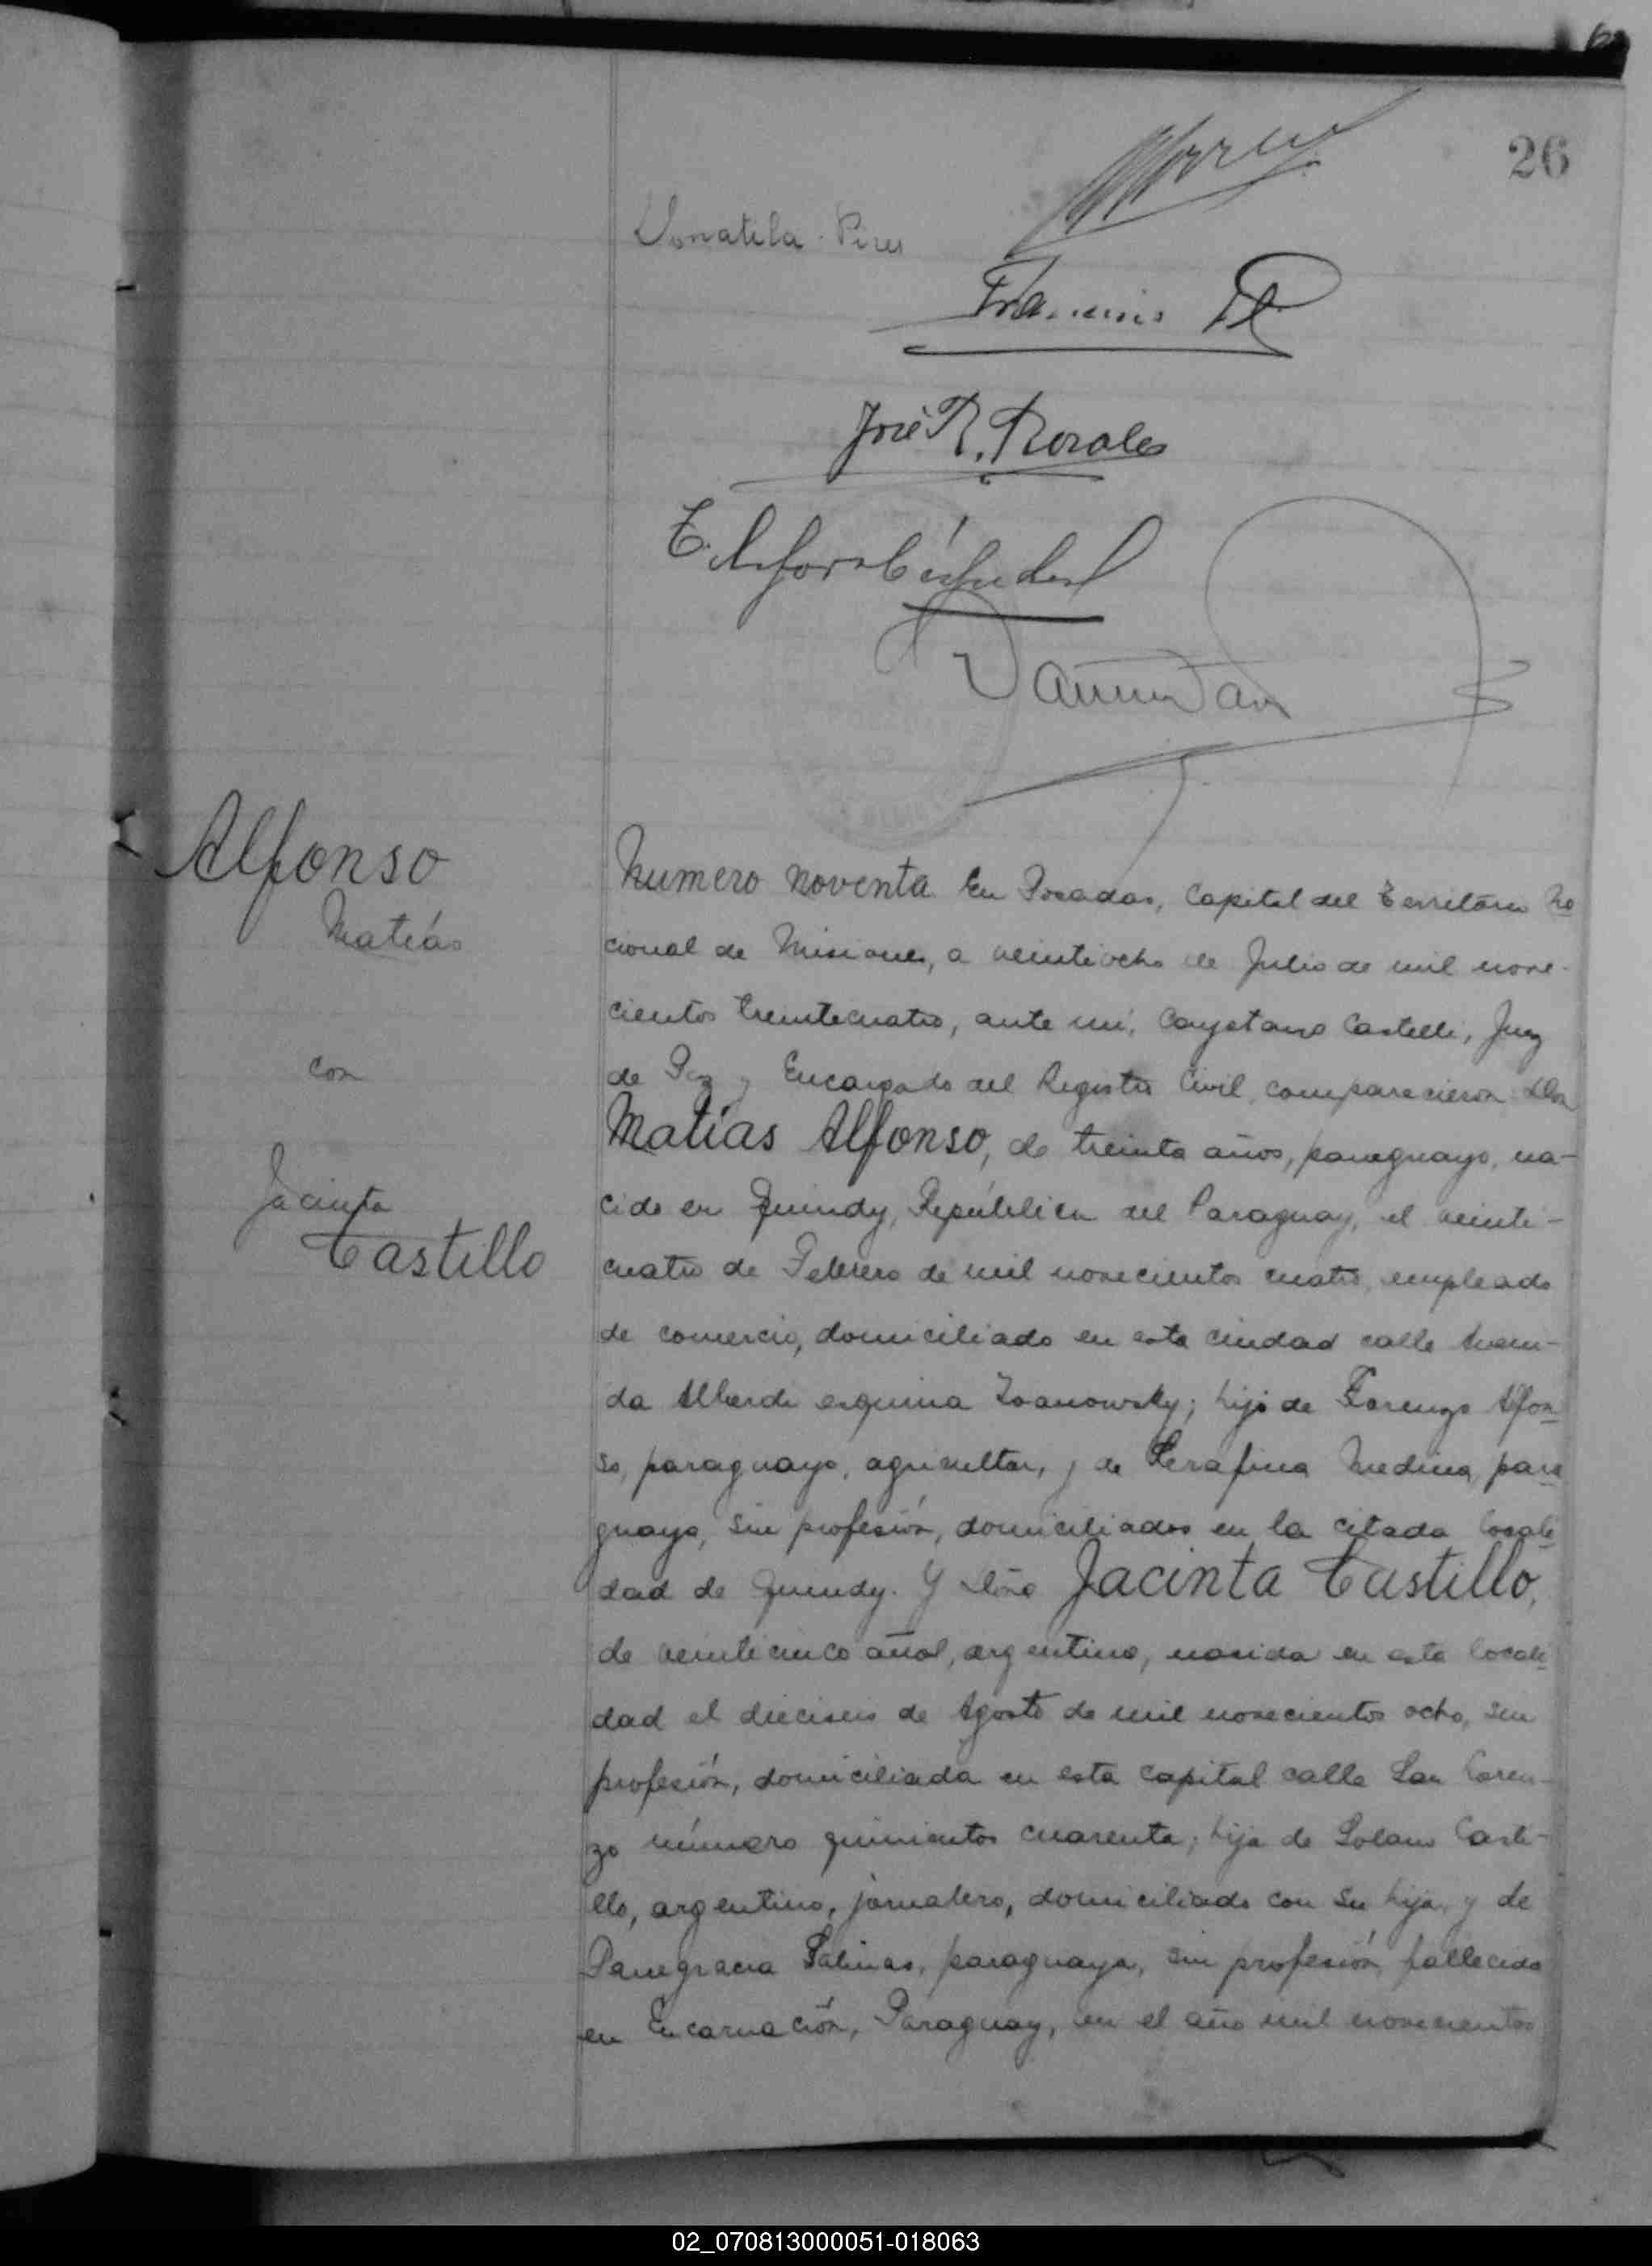 26
Donatila Pires
José R. Rosales
Alfonso
Matías
con
Jacinta
Castillo
Numero noventa En Posadas, Capital del Territorio Na
cional de Misiones, a veintiocho de Julio de mil nove-
cientos treintecuatro, ante mi, Cayetano Castelli, Juez
de Paz y Encargado del Registro Civil, comparecieron Don
Matías Alfonso, de treinta años, paraguayo, na-
cido en Quindy, República del Paraguay, el veinti-
cuatro de Febrero de mil novecientos cuatro, empleado
de comercio, domiciliado en esta ciudad calle Aveni-
da Alberdi esquina Zoanowsky; hijo de Lorenzo Alfon
so, paraguayo, agricultor, y de Serafina Medina, para
guaya, sin profesión, domiciliados en la citada locali
dad de Quindy. Y doña Jacinta Castillo,
de veinticinco años, argentina, nacida en esta locali
dad el dieciseis de Agosto de mil novecientos ocho, sin
profesión, domiciliada en esta capital calle San Loren-
zo número quinientos cuarenta; hija de Solano Casti-
llo, argentino, jornalero, domiciliado con su hija, y de
Salinas, paraguaya, sin profesión, fallecida
en Encarnación, Paraguay, en el año mil novecientos
02_070813000051-018063